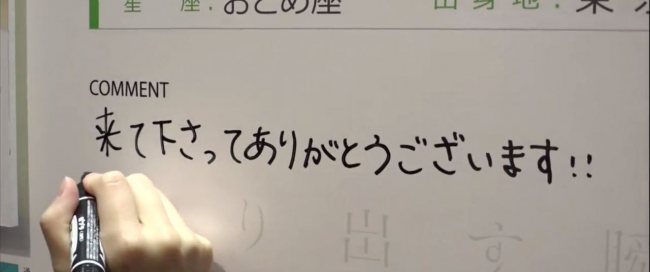 星座:おとめ座 出身地:東
COMMENT
来て下さってありがとうございます!!
り 出 す